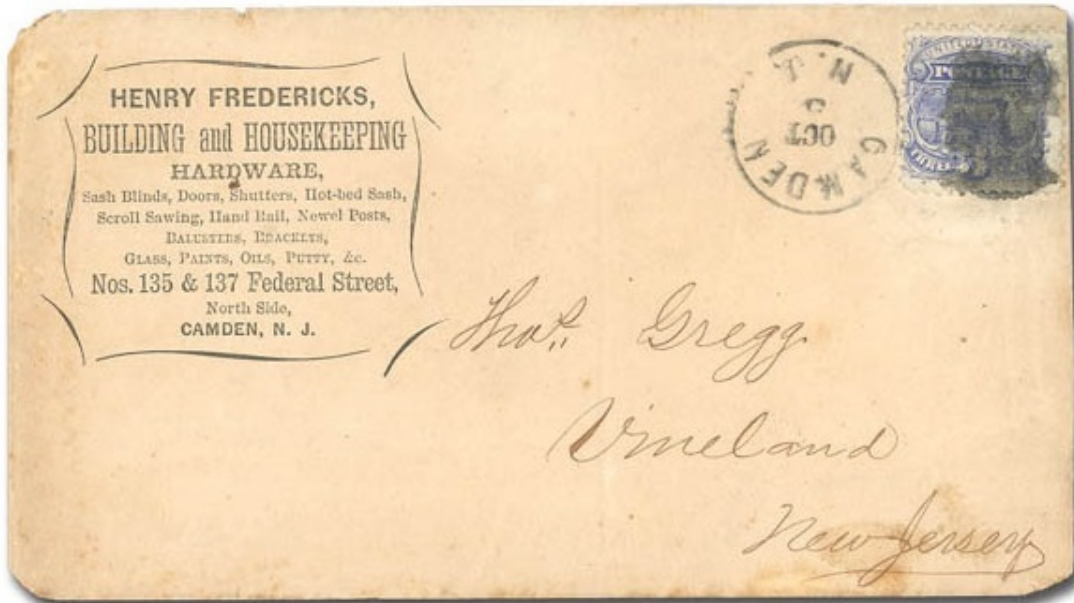 HENRY FREDERICKS,
BUILDING and HOUSEKEEPING
HARDWARE,
Sash Blinds, Doors, Shutters, Hot-bed Sash,
Scroll Sawing, Hand Rail, Newel Posts,
BALUSTERS, BRACKETS,
GLASS, PAINTS, OILS, PUTTY, &c.
Nos. 135 & 137 Federal Street,
North Side,
CAMDEN, N. J.
CAMDEN N.J.
OCT
UNITED STATES
POSTAGE
Thos. Gregg
Vineland
New Jersey